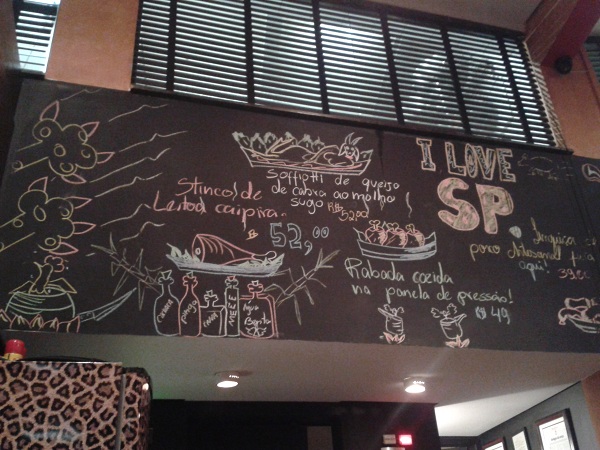 Soffiotti de queijo
de cabra ao molho
sugo R$ 52,00
Stinco de
Leitoa caipira.
52,00
I LOVE
SP.
Linguiça
porco Artesanal
aqui!
39,00
Rabada cozida
na panela de pressão!
49
MEL E
Água
Benta